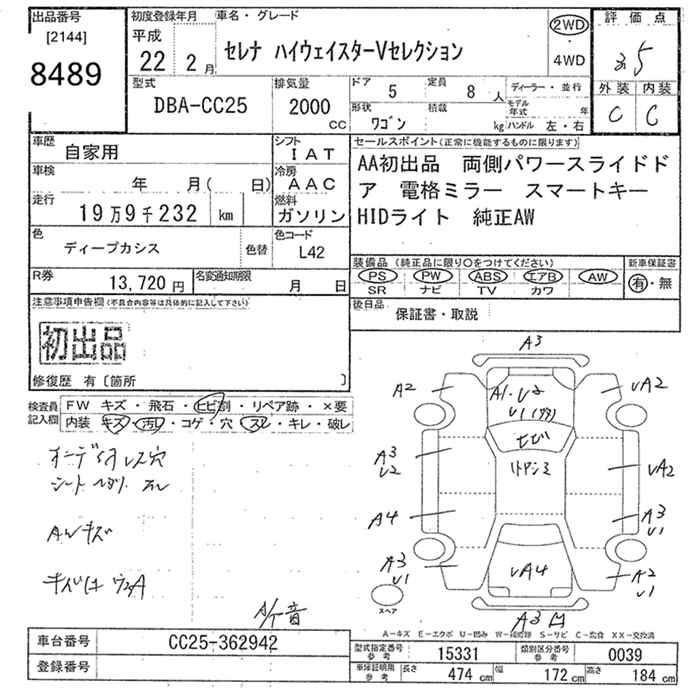 出品番号
[2144]
8489
初度登録年月
平成
22年 2月
車名・グレード
セレナ ハイウェイスターVセレクション
2WD
・
4WD
評価点
3.5
外装 内装
C C
型式
DBA-CC25
排気量
2000
CC
ドア 5
定員 8人
ディーラー・並行
形状 ワゴン
積載 kg
モデル年式 年
ハンドル 左・右
車歴
自家用
シフト
IAT
車検
年 月( 日)
冷房
AAC
走行
19万9千232 km
燃料
ガソリン
色
ディープカシス
色替
色コード
L42
R券
13,720円
名変通知期限
月 日
セールスポイント(正常に機能するものに限ります)
AA初出品 両側パワースライドド
ア 電格ミラー スマートキー
HIDライト 純正AW
装備品(純正品に限り○をつけてください)
PS PW ABS エアB AW
SR ナビ TV カワ
新車保証書
有・無
後日品
保証書・取説
注意事項申告欄(不具合内容等は具体的に記入して下さい)
初出品
修復歴 有〔箇所 〕
検査員
記入欄
FW キズ・飛石・ヒビ割・リペア跡・×要
内装 キズ・汚レ・コゲ・穴・スレ・キレ・破レ
シート ヘタリ スレ
AWキズ
A3
A2
A1・U2
U1
UA2
ヒビ
A3
U2
UA2
A4
A3
U1
A3
U1
UA4
A2
U1
スペア
A3
A-キズ E-エクボ U-凹み W-補修跡 S-サビ C-腐食 XX-交換済
車台番号
CC25-362942
登録番号
型式指定番号
参考
15331
類別区分番号
参考
0039
車庫証明用
参考
長さ 474 cm
幅 172 cm
高さ 184 cm